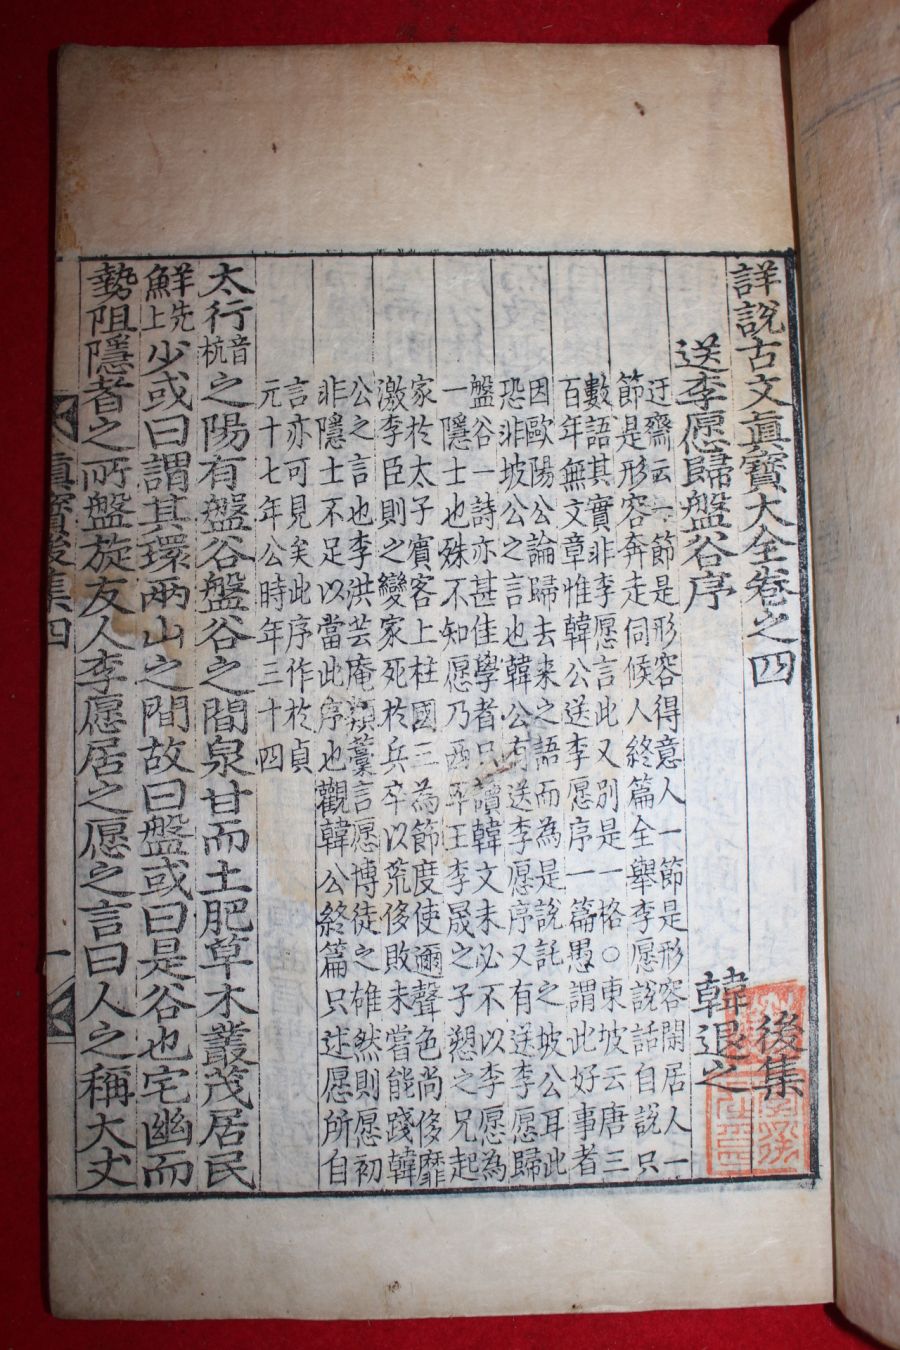 詳說古文眞寶大全卷之四 後集
送李愿歸盤谷序 韓退之
迂齋云一節是形容得意人一節是形容閒居人一
節是形容奔走伺候人終篇全舉李愿說話自說只
數語其實非李愿言此又別是一格○東坡云唐三
百年無文章惟韓公送李愿序一篇愚謂此好事者
因歐陽公論歸去來之語而為是說託之坡公耳此
恐非坡公之言也韓公有送李愿序又有送李愿歸
盤谷一詩亦甚佳學者只讀韓文未必不以李愿為
一隱士也殊不知愿乃西平王李晟之子愬之兄起
家於太子賓客上柱國三為節度使邇聲色尚侈靡
激李臣則之變家死於兵卒以荒侈敗未嘗能踐韓
公之言也李洪芸庵類藁言愿博徒之雄然則愿初
非隱士不足以當此序也觀韓公終篇只述愿所自
言亦可見矣此序作於貞
元十七年公時年三十四
太行音杭之陽有盤谷盤谷之間泉甘而土肥草木叢茂居民
鮮先上少或曰謂其環兩山之間故曰盤或曰是谷也宅幽而
勢阻隱者之所盤旋友人李愿居之愿之言曰人之稱大丈
眞寶後集四 一